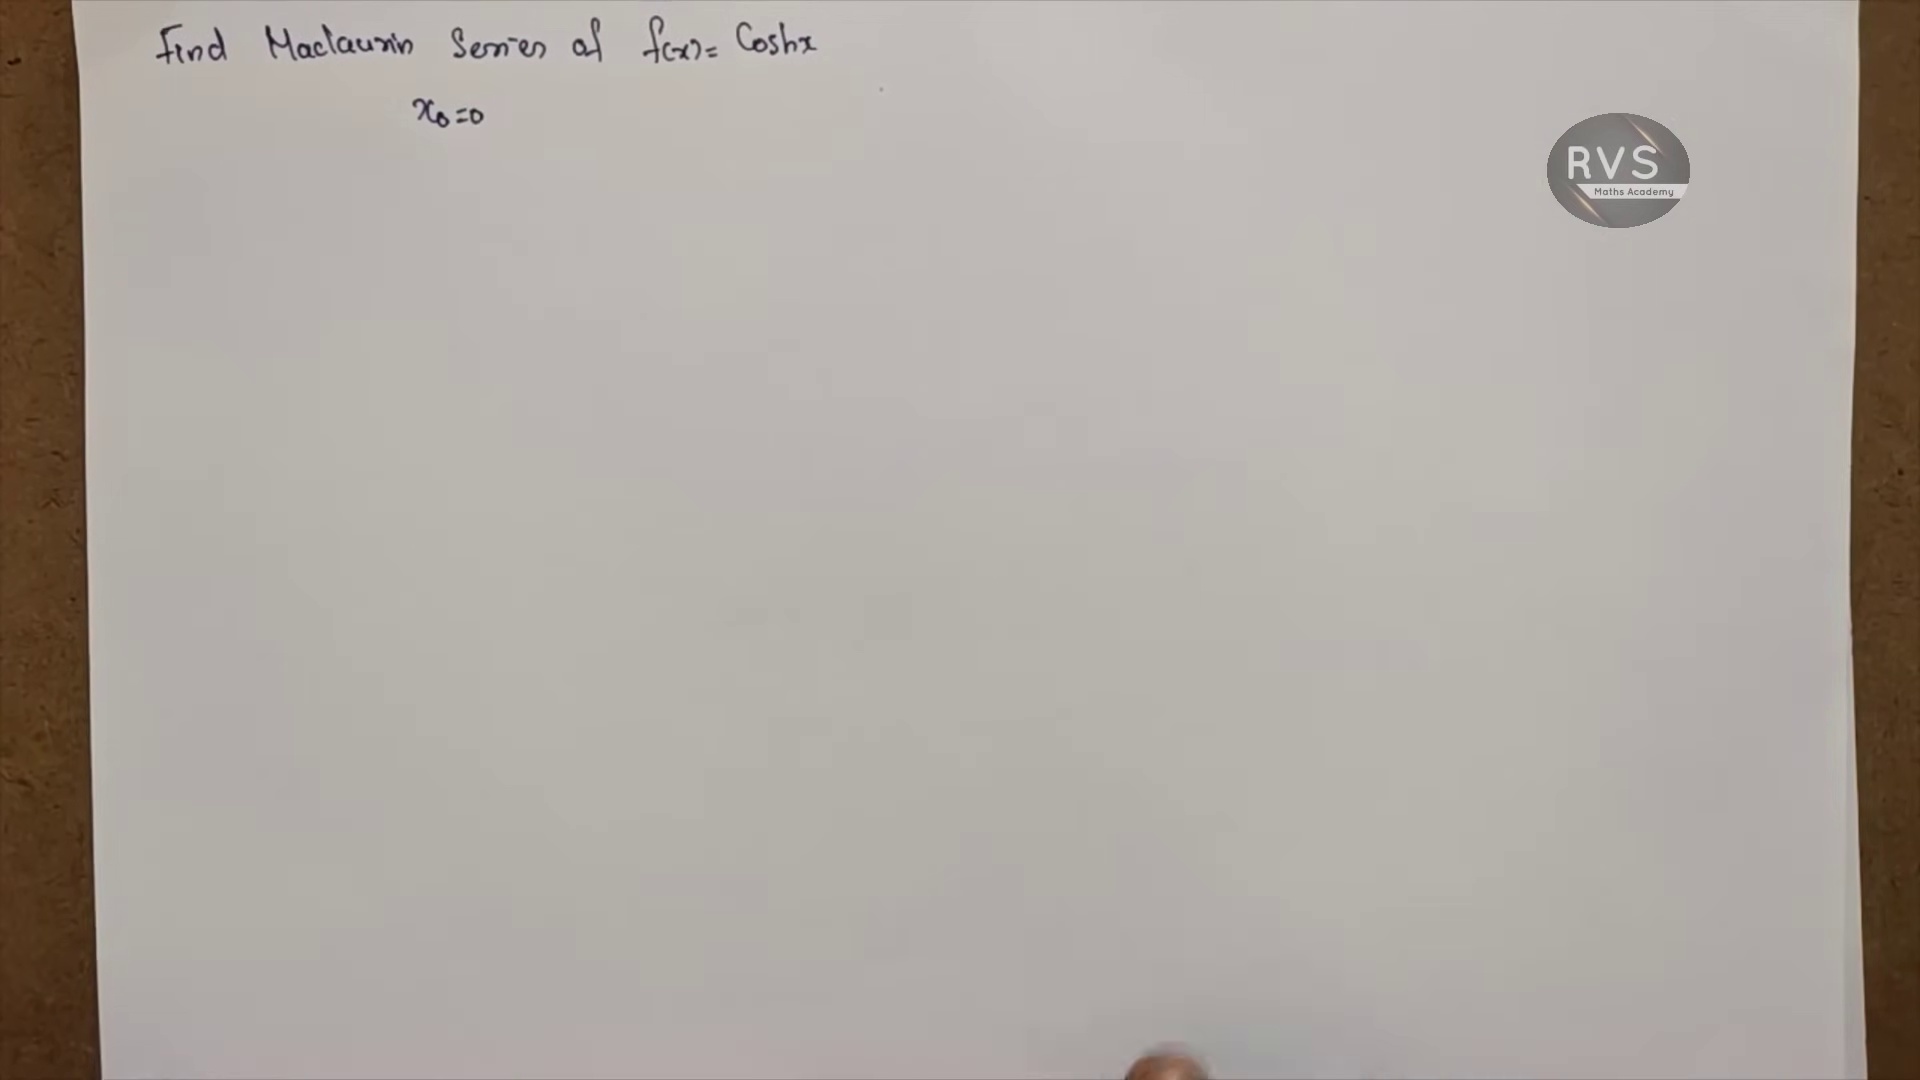 Find Maclaurin Series of f(x) = Coshx
x₀=0
RVS
Maths Academy